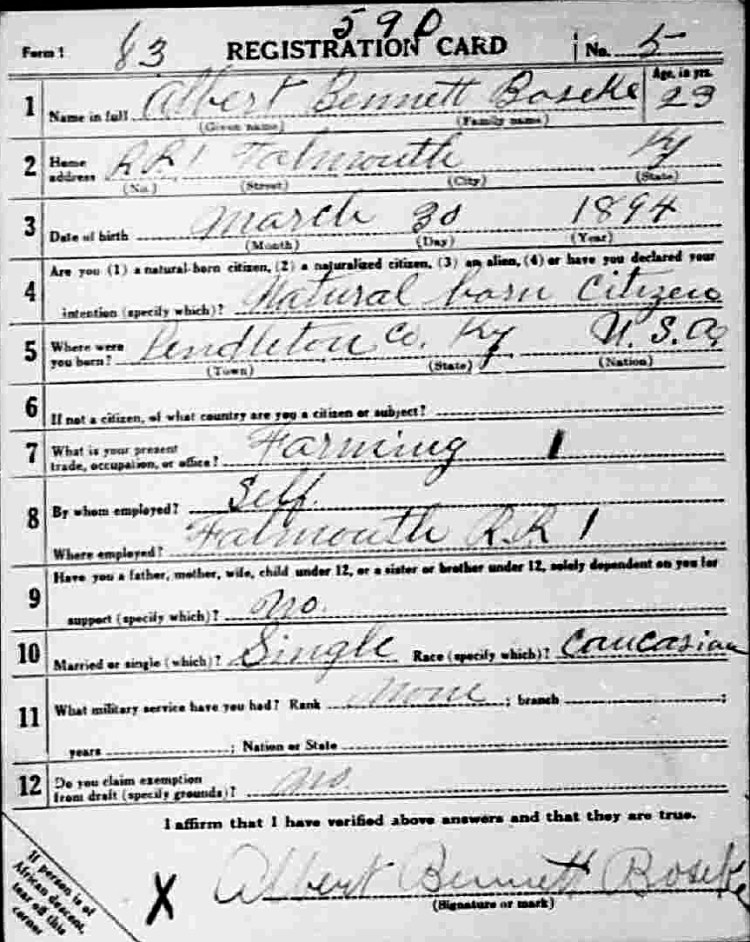 590
Form 1 63 REGISTRATION CARD No. 5
1 Name in full Albert Bennett Boseke Age, in yrs. 23
(Given name) (Family name)
2 Home address RR1 Falmouth Ky
(No.) (Street) (City) (State)
3 Date of birth March 30 1894
(Month) (Day) (Year)
Are you (1) a natural-born citizen, (2) a naturalized citizen, (3) an alien, (4) or have you declared your
4 intention (specify which)? Natural born Citizen
5 Where were you born? Pendleton Co. Ky U.S.A.
(Town) (State) (Nation)
6 If not a citizen, of what country are you a citizen or subject?
7 What is your present trade, occupation, or office? Farming 1
8 By whom employed? Self.
Where employed? Falmouth R.R 1
Have you a father, mother, wife, child under 12, or a sister or brother under 12, solely dependent on you for
9 support (specify which)? No.
10 Married or single (which)? Single Race (specify which)? Caucasian
11 What military service have you had? Rank None ; branch ;
years ; Nation or State
12 Do you claim exemption from draft (specify grounds)? No.
I affirm that I have verified above answers and that they are true.
If person is of
African descent,
tear off this
corner
X Albert Bennett Boseke
(Signature or mark)